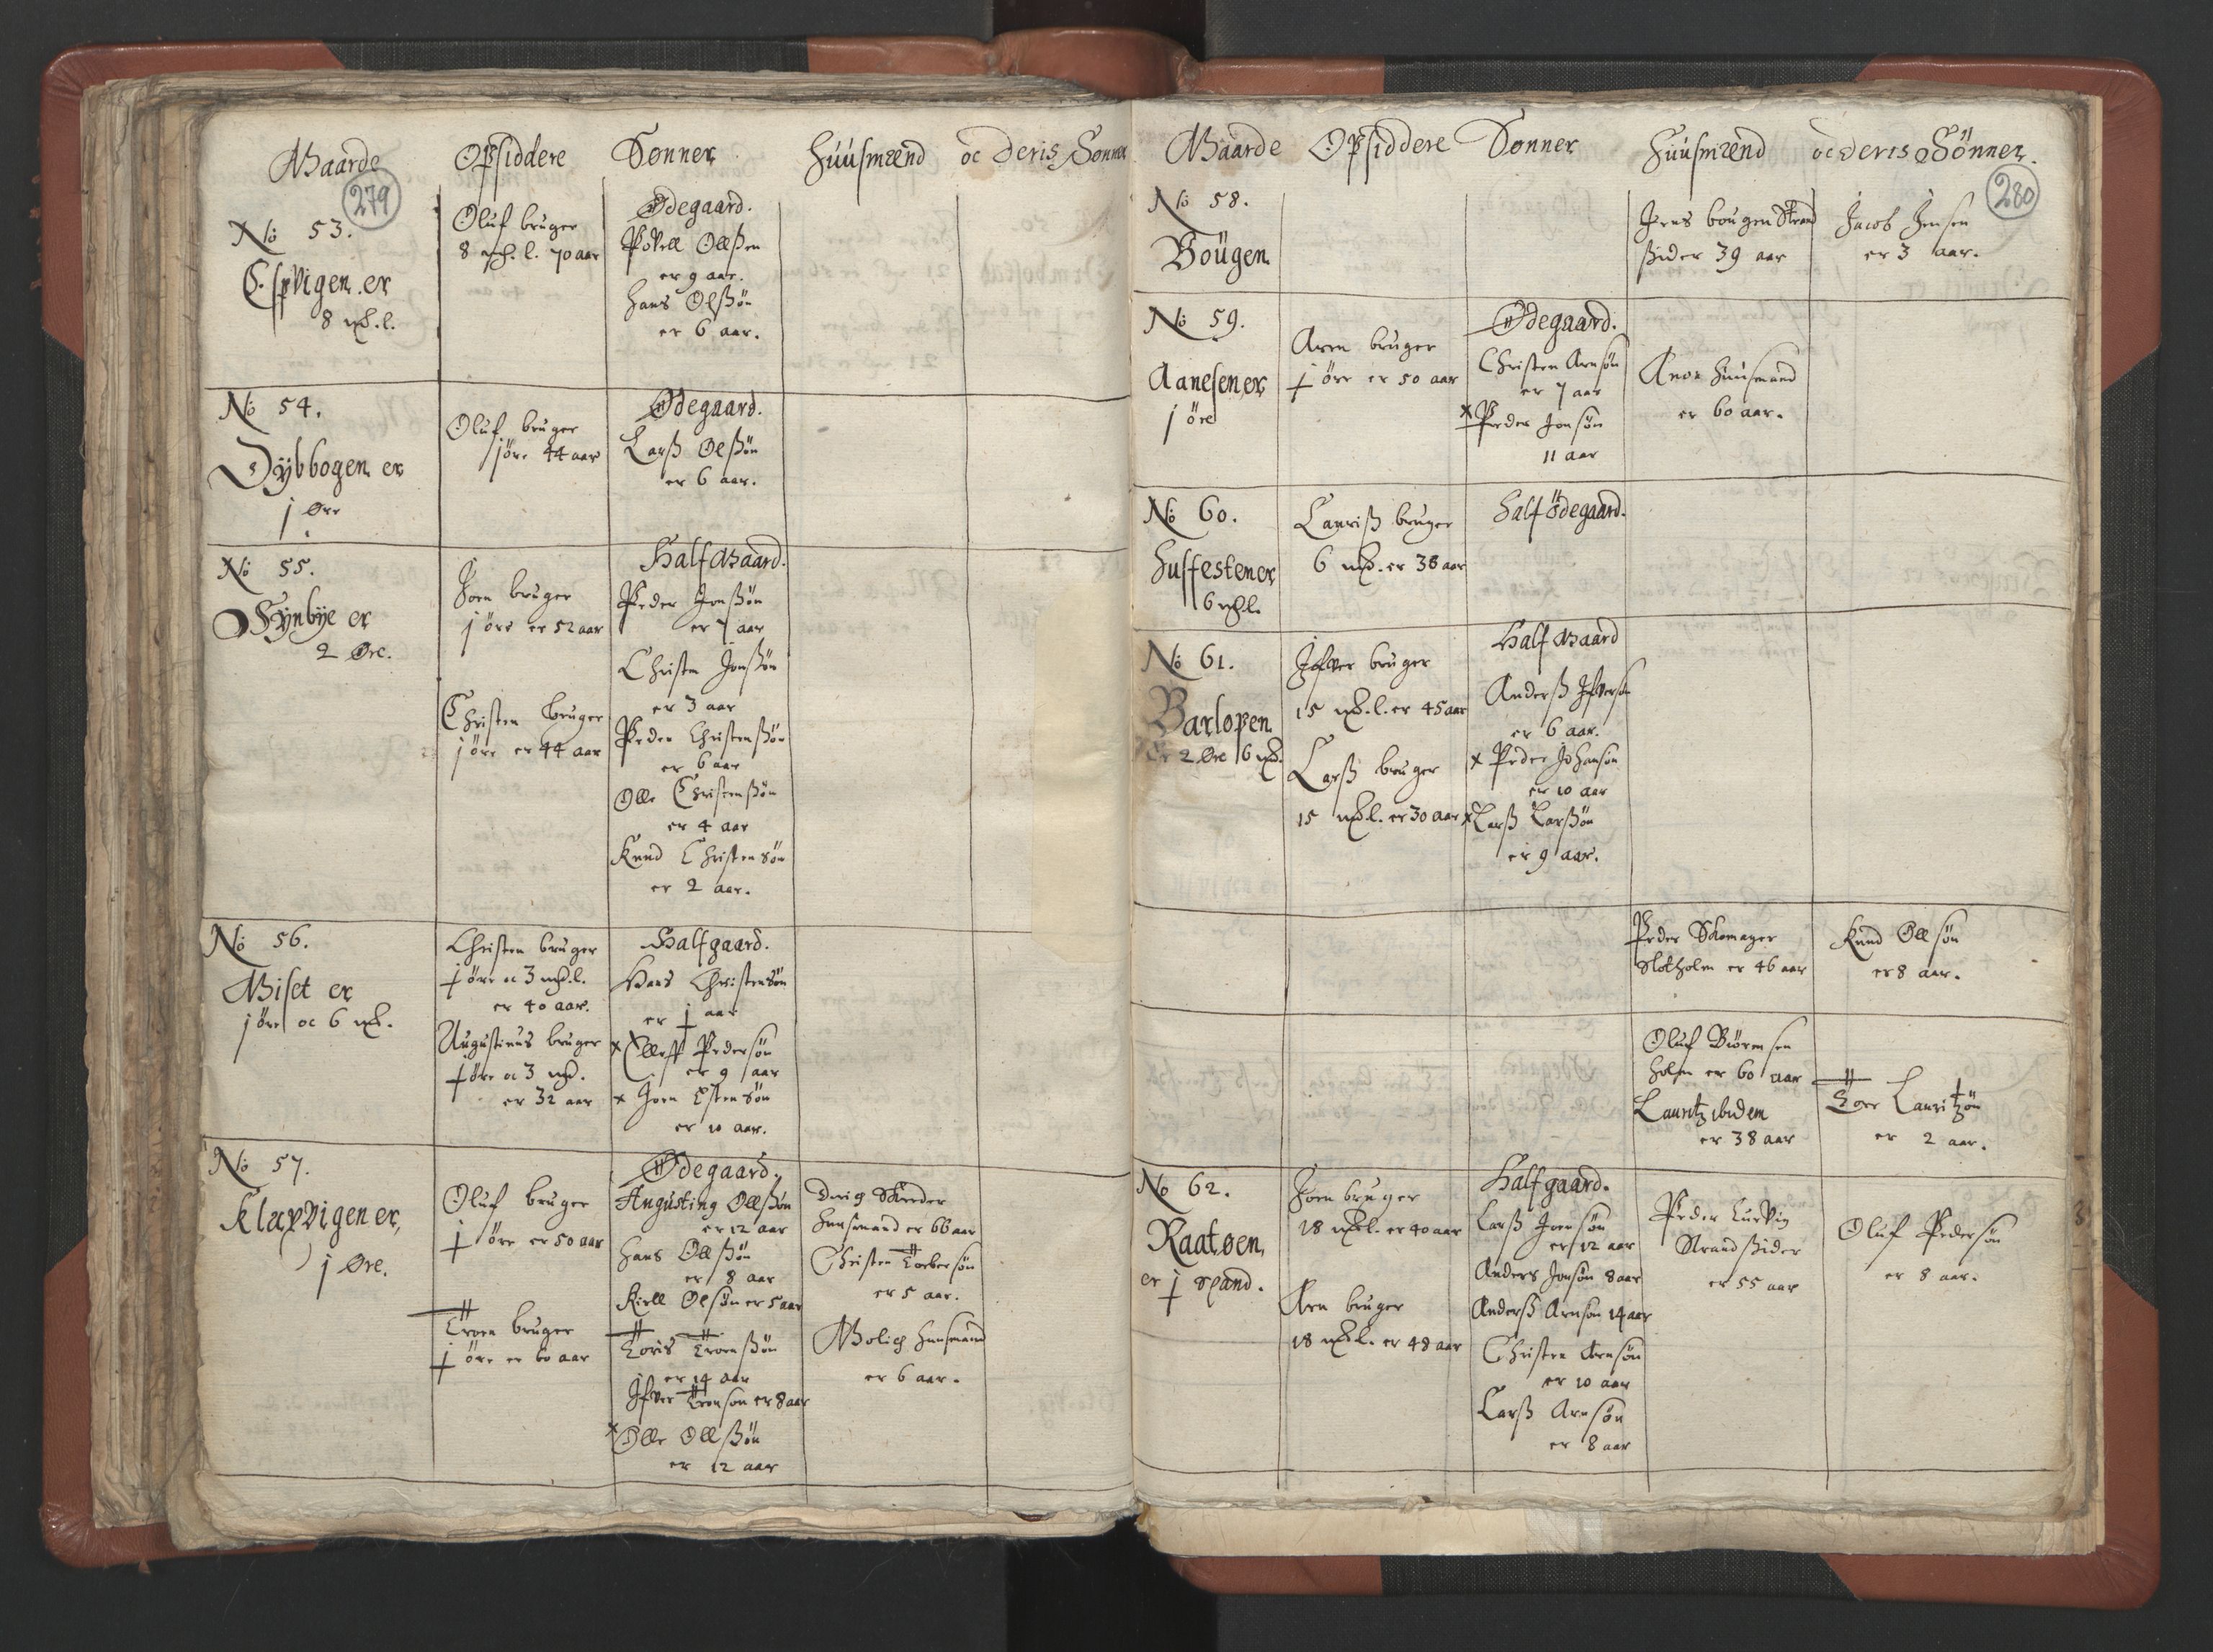 Gaarde Opsiddere Sønner Huusmænd oc Deris Sønner
279
No 53.
Espvigen er
8 mk. l.
Oluf bruger
8 mk. l. 70 aar
Ødegaard.
Povell Ollsen
er 9 aar.
Hans Olsøn
er 6 aar.
No 54.
Dybbogen er
j Øre
Oluf bruger
j øre 44 aar
Ødegaard.
Larss Olssøn
er 6 aar.
No 55.
Synbye er
2 Øre.
Joen bruger
j øre er 52 aar
Christen bruger
j øre er 44 aar
Half Gaard.
Peder Jonssøn
er 7 aar
Christen Jonssøn
er 3 aar
Peder Christenssøn
er 6 aar
Olle Christenssøn
er 4 aar
Knud Christensøn
er 2 aar.
No 56.
Giset er
j øre oc 6 mk.
Christen bruger
j øre oc 3 mk. l.
er 40 aar.
Augustinus bruger
j øre oc 3 mk.
er 32 aar
Halfgaard.
Hans Christensøn
er j aar
x Elleff Pedersøn
er 9 aar
x Joen Estensøn
er 10 aar.
No 57.
Klapvigen er,
j Øre.
Oluf bruger
j øre er 50 aar
Troen bruger
j øre er 60 aar
Ødegaard.
Augusting Ollssøn
er 12 aar
Hans Ollssøn
er 8 aar
Kield Olsøn er 5 aar
Toris Troenssøn
er 14 aar
Ifver Tronsøn er 8 aar
x Olle Ollssøn
er 12 aar
Skreder
Huusmand er 66 aar
Christen Torbersøn
er 5 aar.
Huusmand
er 6 aar.
Gaarde Opsiddere Sønner Huusmænd oc deris Sønner.
280
No 58.
Bougen.
Jens bougen Strand
ssider 39 aar
Jacob Jensen
er 3 aar.
No 59.
Aanesen er
j øre
Aren bruger
j øre er 50 aar
Ødegaard.
Christen Arnsøn
er 7 aar
x Peder Jonsøn
11 aar
Huusmand
er 60 aar.
No 60.
Husfesten er
6 mk. l.
Lauriss bruger
6 mk. er 38 aar
Half ødegaard.
No 61.
Barlopen
er 2 Øre 6 mk.
Ifver bruger
15 mk. l. er 45 aar
Larss bruger
15 mk l. er 30 aar
Half Gaard
Anderss Ifversøn
er 6 aar.
x Peder Johansøn
er 10 aar
x Larss Larssøn
er 9 aar.
Peder Skomager
Slotholm er 46 aar
Knud Ollsøn
er 8 aar.
Oluf Biørnsen
holm er 60 aar
Lauritz ibidem
er 38 aar
Tore Lauritzøn
er 2 aar.
No 62.
Raatøen,
er j spand.
Joen bruger
18 mk l. er 40 aar
Arn bruger
18 mk l. er 48 aar
Halfgaard.
Larss Joensøn
er 12 aar
Anders Jonsøn 8 aar
Anderss Arnsøn 14 aar
Christen Arnsøn
er 10 aar
Larss Arnsøn
er 8 aar
Peder Kurvig
Strandssider
er 55 aar
Oluf Pedersøn
er 8 aar.